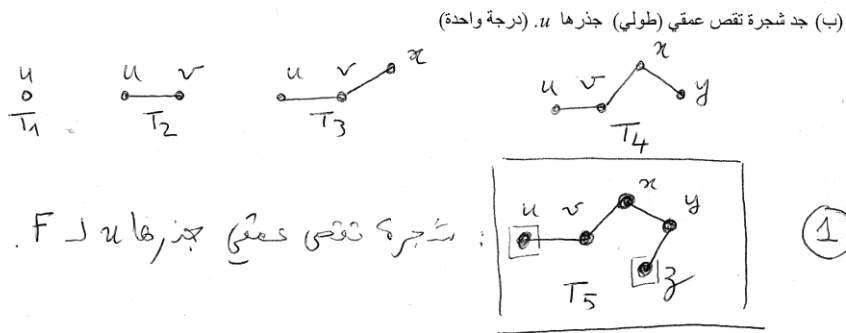 (ب) جد شجرة تقص عمقي (طولي) جذرها u. (درجة واحدة)
u
T1
u v
T2
u v x
T3
u v x y
T4
u v x y z
T5
: شجرة تقص عمقي جذرها u لـ F.
1